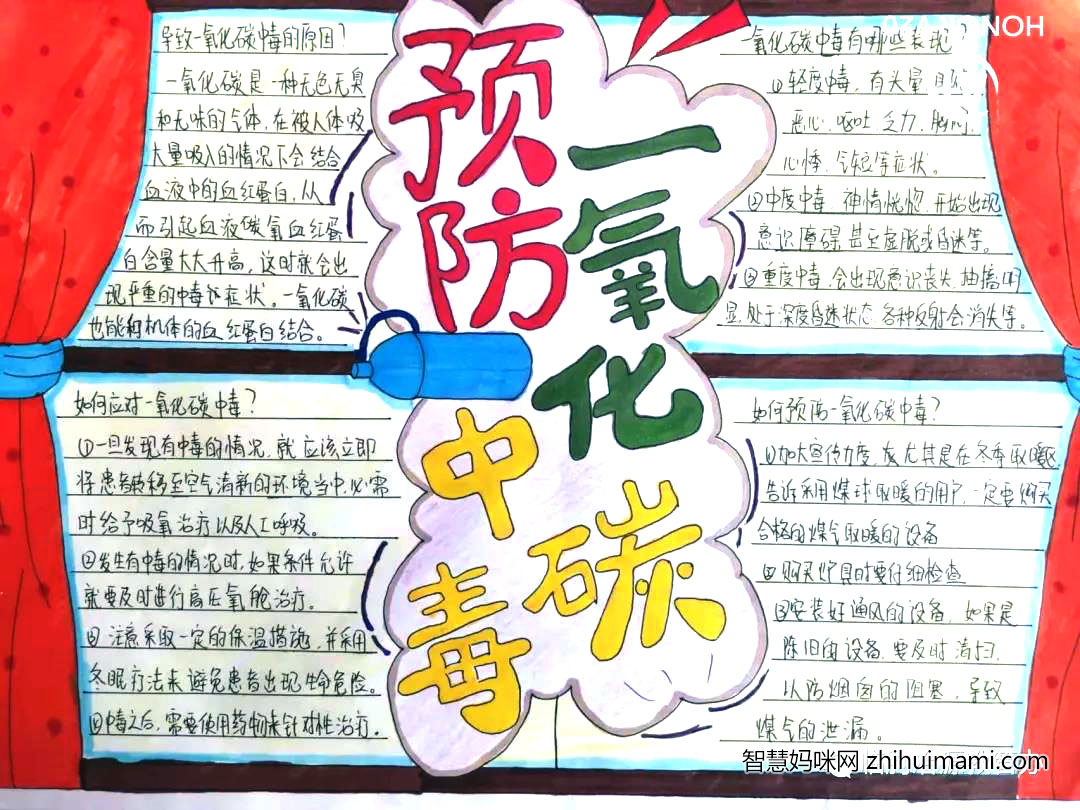 预防
一氧化碳
中毒
导致一氧化碳中毒的原因?
一氧化碳是一种无色无臭
和无味的气体,在被人体吸
大量吸入的情况下会结合
血液中的血红蛋白,从
而引起血液碳氧血红蛋
白含量大大升高,这时就会出
现严重的中毒 症状。一氧化碳
也能和机体的血红蛋白结合。
一氧化碳中毒有哪些表现?
①轻度中毒,有头晕
恶心、呕吐、乏力、胸闷、
心悸、气短等症状。
中度中毒,神情恍惚,开始出现
意识障碍,甚至虚脱或昏迷等。
重度中毒,会出现意识丧失,抽搐
显,处于深度昏迷状态,各种反射会消失等。
如何应对一氧化碳中毒?
①一旦发现有中毒的情况,就应该立即
将患者转移至空气清新的环境当中,必需
时给予吸氧治疗以及人工呼吸。
②发生有中毒的情况时,如果条件允许
就要及时进行高压氧舱治疗。
注意采取一定的保温措施,并采用
冬眠疗法来避免患者出现生命危险。
中毒之后,需要使用药物来针对性治疗。
如何预防一氧化碳中毒?
①加大宣传力度,尤其是在冬季取暖区
告诉采用煤球取暖的用户,一定要购买
合格的煤气取暖的设备
购买炉具时要仔细检查
安装好通风的设备,如果是
陈旧的设备,要及时清扫,
以防烟囱的阻塞,导致
煤气的泄漏。
智慧妈咪网 zhihuimami.com